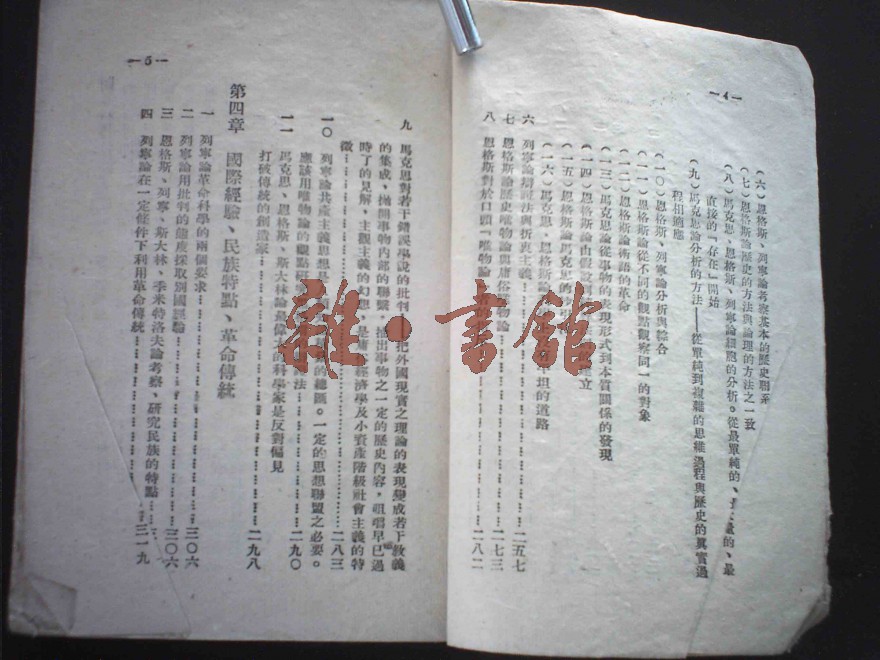 —4—
(六)恩格斯、列寧論考察基本的歷史聯系
(七)恩格斯論歷史的方法與論理的方法之一致
(八)馬克思、恩格斯、列寧論細胞的分析。從最單純的、的、最
直接的「存在」開始
(九)馬克思論分析的方法——從單純到複雜的思維過程與歷史的真實過
程相適應
(一〇)恩格斯、列寧論分析與綜合
(一一)恩格斯論從不同的觀點觀察同一的對象
(一二)恩格斯論術語的革命
(一三)馬克思論從事物的表現形式到本質關係的發現
(一四)恩格斯論由假設立
(一五)恩格斯論馬克思的
(一六)馬克思、恩格斯論坦的道路
六 列寧論詭辯法與折衷主義……二五七
七 恩格斯論歷史唯物論與庸俗物論……二七三
八 恩格斯對於口頭「唯物論……二八二
—5—
九 馬克思對若干錯誤學說的批判——把外國現實之理論的表現變成若干教義
的集成、拋開事物內部的聯繫、抽出事物之一定的歷史內容,咀嚼早已過
時了的見解、主觀主義的幻想,是庸經濟學及小資產階級社會主義的特
徵……二八三
一〇 列寧論共產主義思想是的總匯。一定的思想聯盟之必要。
應該用唯物論的觀點研法……二九〇
一一 馬克思、恩格斯、斯大林論最偉大的科學家是反對偏見
打破傳統的創造家……二九八
第四章 國際經驗、民族特點、革命傳統
一 列寧論革命科學的兩個要求……三〇六
二 列寧論用批判的態度採取別國經驗……三〇六
三 恩格斯、列寧、斯大林、季米特洛夫論考察、研究民族的特點……三一九
四 列寧論在一定條件下利用革命傳統
雜·書館